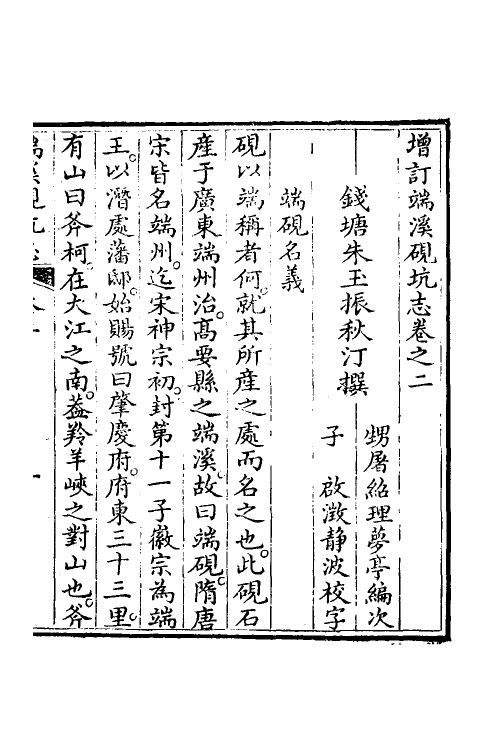 增訂端溪硯坑志卷之二
錢塘朱玉振秋汀撰
甥屠紹理夢亭編次
子 啟澂靜波校字
端硯名義
硯以端稱者何。就其所產之處而名之也。此硯石
產于廣東端州治。髙要縣之端溪。故曰端硯。隋唐
宋皆名端州。迄宋神宗初。封第十一子徽宗為端
王。以潛處藩邸。始賜號曰肇慶府。府東三十三里。
有山曰斧柯。在大江之南。葢羚羊峽之對山也。斧
端溪硯坑志
一